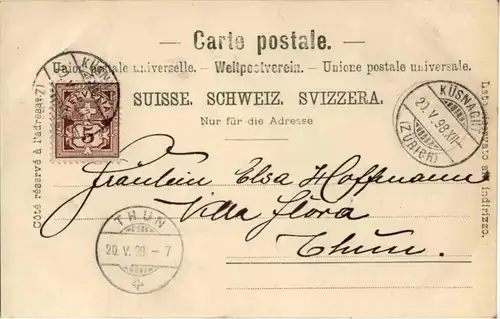 Carte postale.
Union postale universelle. — Weltpostverein. — Unione postale universale.
SUISSE. SCHWEIZ. SVIZZERA.
Nur für die Adresse
Côté réservé à l'adresse.
Lato riservato all'indirizzo.
HELVETIA
5
KÜSNACHT
20.V.98.XII-
(ZÜRICH)
Fräulein Elsa Hoffmann
Villa Flora
Thun.
THUN
20.V.98.-7